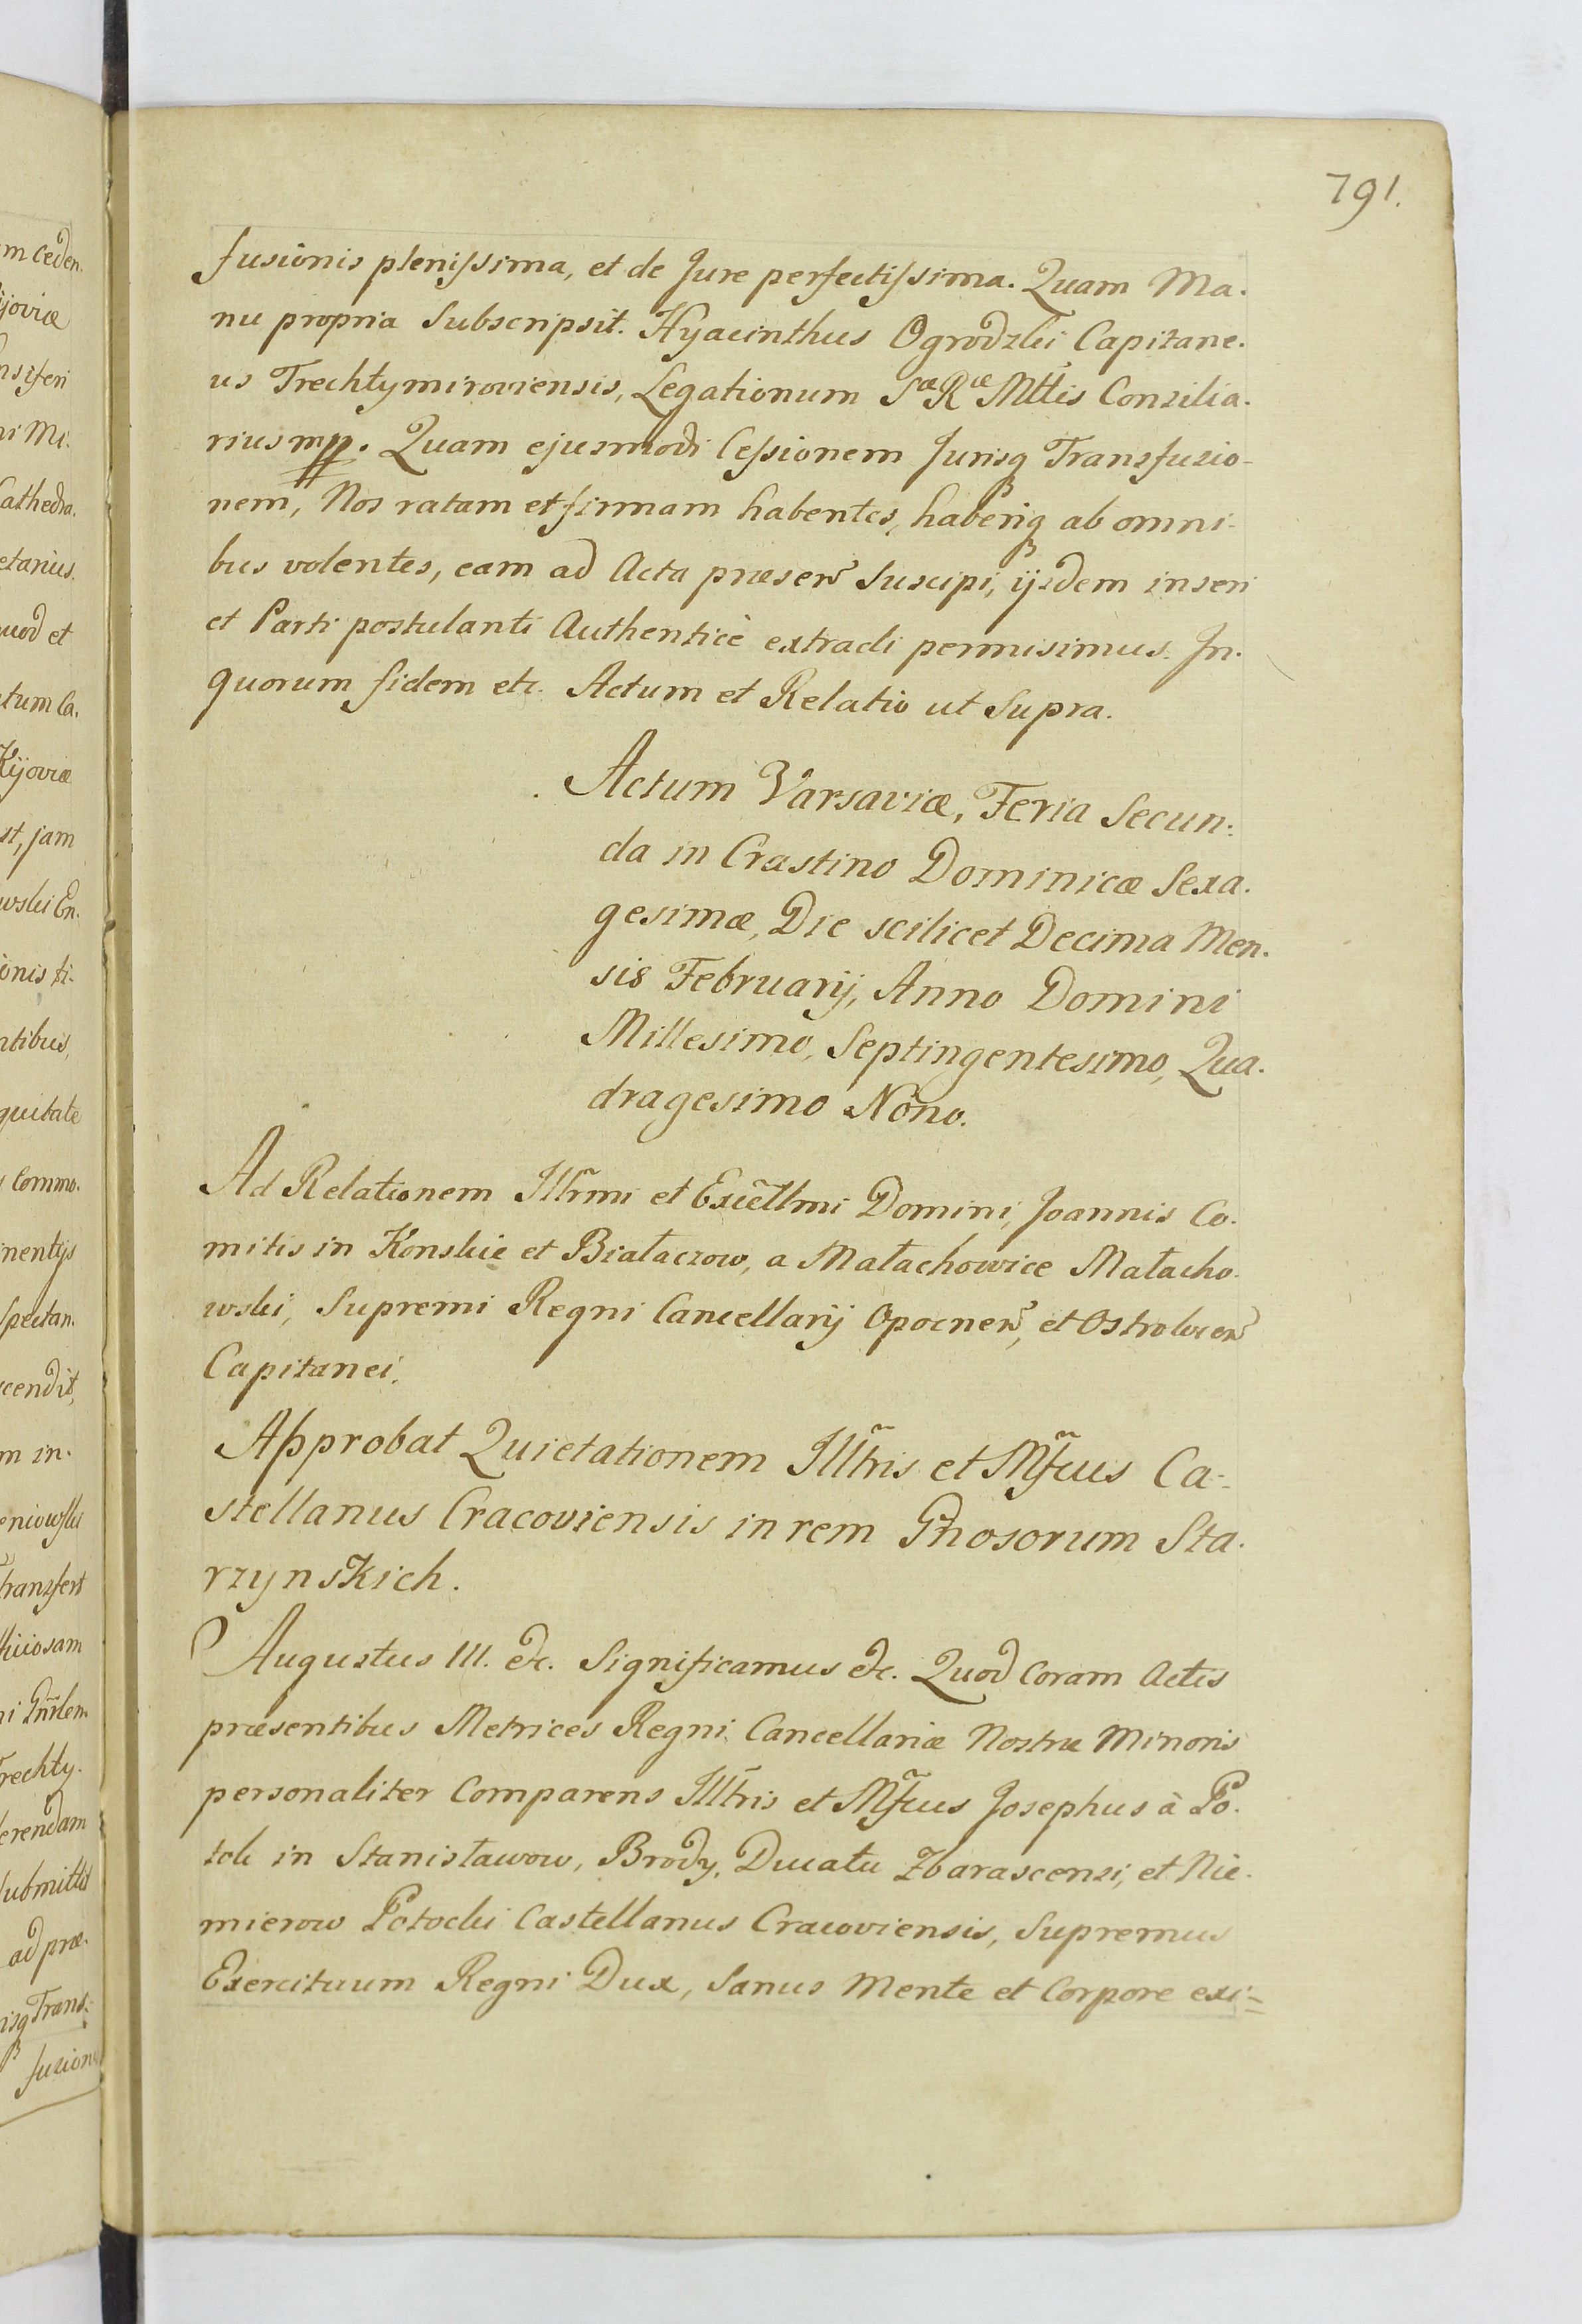 791.
fusionis plenissima, et de Jure perfectissima. Quam Ma.
nu propria Subscripsit. Hyacinthus Ogrodzki Capitane.
us Trechtymiroviensis, Legationum Sæ Ræ Mttis Consilia.
rius mpp. Quam ejusmodi Cessionem Jurisq Transfusio-
nem, Nos ratam et firmam habentes, haberiq ab omni-
bus volentes, eam ad Acta præsen̄ Suscipi, ijsdem inseri
et Parti postulanti Authenticè extradi permisimus. In.
quorum fidem etc. Actum et Relatio ut Supra.
Actum Varsaviæ, Feria Secun:
da in Crastino Dominicæ Sexa.
gesimæ, Die scilicet Decima Men.
sis Februarij, Anno Domini
Millesimo, Septingentesimo, Qua.
dragesimo Nono.
Ad Relationem Illr̃mi et Excell̃mi Domini, Joannis Co.
mitis in Konskie et Białaczow, a Małachowice Małacho.
wski, Supremi Regni Cancellarij Opocnen̄, et Ostrolecen̄
Capitanei.
Approbat Quietationem Ill̃tris et Mf̃cus Ca=
stellanus Cracoviensis in rem Gñosorum Sta.
rzynskich.
Augustus III. &c. Significamus &c. Quod Coram Actis
præsentibus Metrices Regni Cancellariæ Nostræ Minoris
personaliter Comparens Ill̃tris et Mf̃cus Josephus à Po.
tok in Stanisławow, Brody, Ducatu Zbarascensi, et Nie.
mierow Potocki Castellanus Cracoviensis, Supremus
Exercituum Regni Dux, Sanus Mente et Corpore exi=